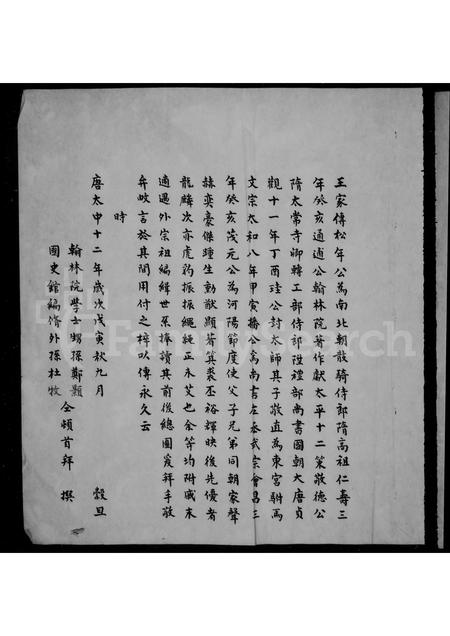 王家傳松年公為南北朝散騎侍郎隋高祖仁壽三
年癸亥通通公翰林院著作獻太平十二策敬德公
隋太常寺卿轉工部侍郎陞禮部尚書國朝大唐貞
觀十一年丁酉珪公封太師其子敬直為東宮駙馬
文宗太和八年甲寅播公為尚書左丞武宗會昌三
年癸亥茂元公為河陽節度使父子兄弟同朝家聲
赫奕豪傑踵生勳猷顯著箕裘丕裕輝映後先優者
龍麟次亦虎豹振振繩繩正未艾也余等均附戚末
適遇外宗祖編緝世系捧讀其前後總圖爰拜手敬
弁數言於其間用付之梓以傳永久云
時
唐太中十二年歲次戊寅秋九月 穀旦
翰林院學士甥孫鄭顥
國史館編脩外孫杜牧
仝頓首拜 撰
FamilySearch